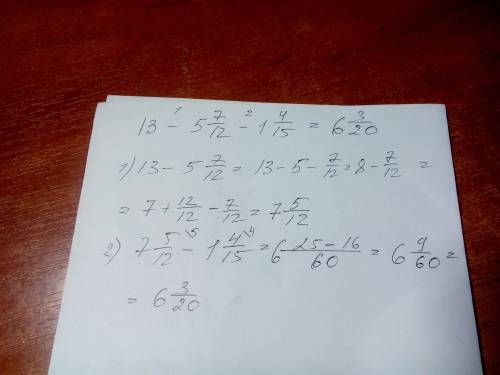 13 -¹ 5 7/12 -² 1 4/15 = 6 3/20
1) 13 - 5 7/12 = 13 - 5 - 7/12 = 8 - 7/12 =
= 7 + 12/12 - 7/12 = 7 5/12
2) 7 5/12 \5 - 1 4/15 \4 = 6 25-16/60 = 6 9/60 =
= 6 3/20